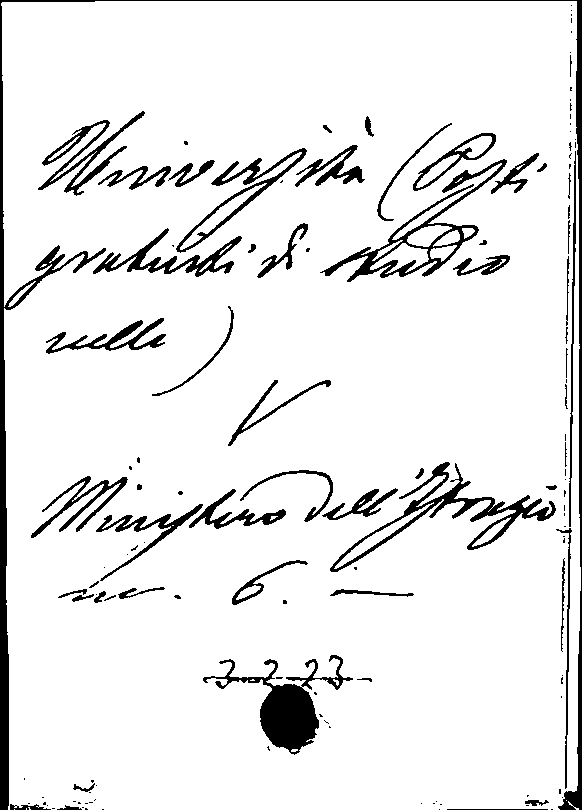 Università (Posti
gratuiti di studio
nelle)
V
Ministero dell'Istruzio
ne. 6. —
3223